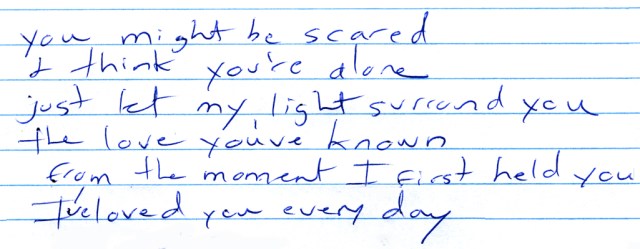 you might be scared
& think you're alone
just let my light surround you
the love you've known
from the moment I first held you
I've loved you every day